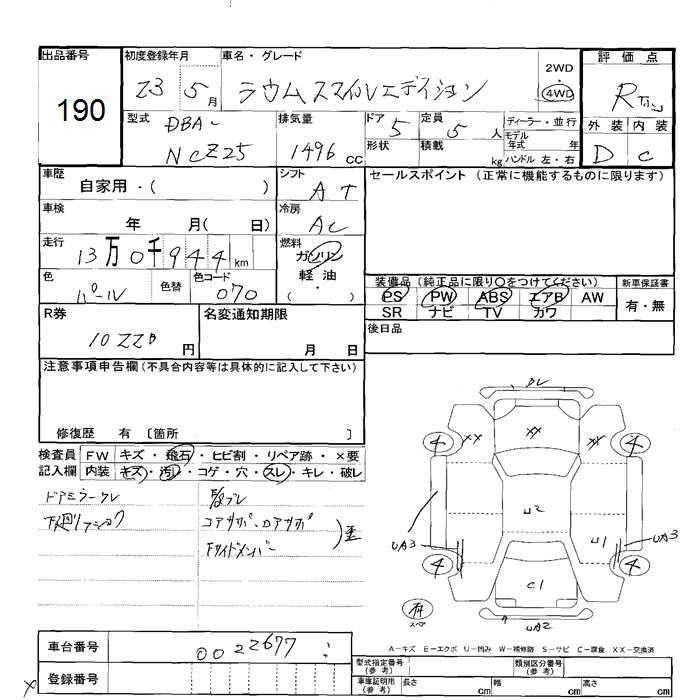 出品番号
190
初度登録年月
23 5 月
車名・グレード
ラウム スマイルエディション
2WD
・
4WD
評価点
R
外装 内装
D C
型式
DBA-
NCZ25
排気量
1496 cc
ドア 5
形状
定員 5 人
積載 kg
ディーラー・並行
モデル年式 年
ハンドル 左・右
車歴
自家用・( )
シフト
AT
車検
年 月( 日)
冷房
AC
走行
13万0千944 km
燃料
ガソリン
軽油
( ・ )
色
パール
色替
色コード
070
セールスポイント (正常に機能するものに限ります)
装備品 (純正品に限り○をつけてください)
PS PW ABS エアB AW
SR ナビ TV カワ
新車保証書
有・無
後日品
R券
10220 円
名変通知期限
月 日
注意事項申告欄(不具合内容等は具体的に記入して下さい)
修復歴 有 〔箇所 〕
検査員記入欄
FW キズ・飛石・ヒビ割・リペア跡・×要
内装 キズ・汚レ・コゲ・穴・スレ・キレ・破レ
ドアミラーキレ
コアサポ・ロアサポ
下サイドメンバー
歪
XX
XX
XX
4
4
4
4
U2
U1
UA3
UA3
C1
UA2
有
スペア
A−キズ E−エクボ U−凹み W−補修跡 S−サビ C−腐食 XX−交換済
車台番号
0022677
登録番号
型式指定番号(参考)
類別区分番号(参考)
車庫証明用(参考)
長さ cm
幅 cm
高さ cm